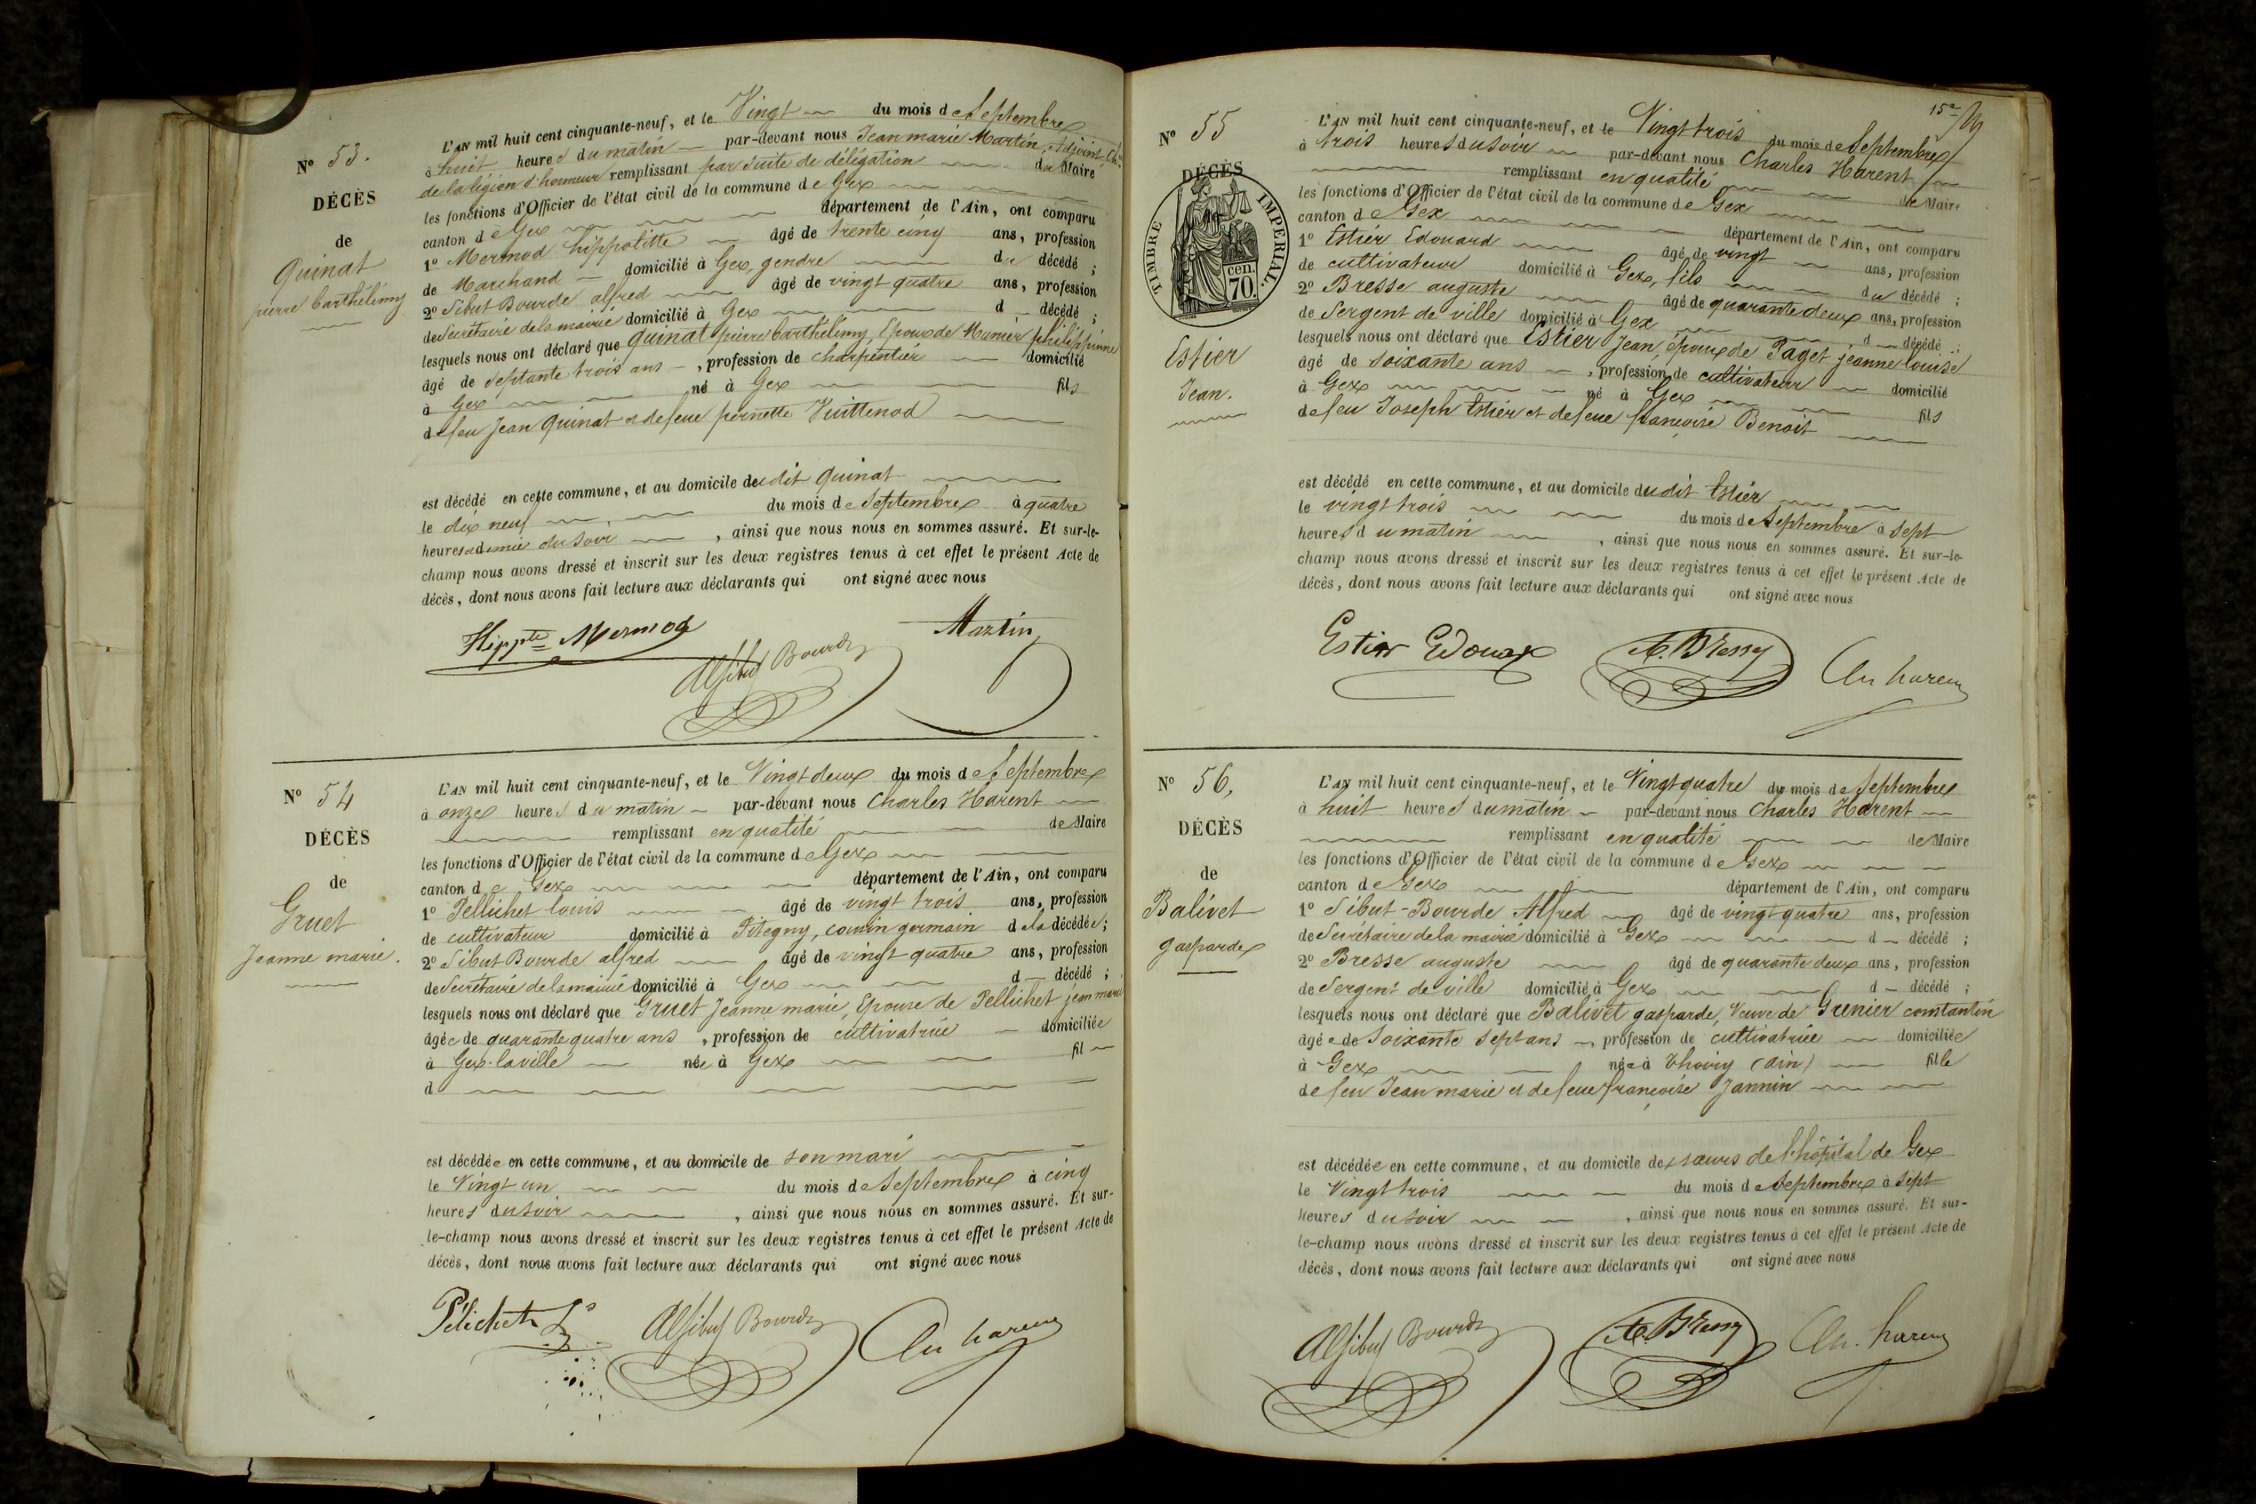 N° 53.
DÉCÈS
de
Quinat
pierre barthélimy
L'AN mil huit cent cinquante-neuf, et le Vingt du mois de Septembre
à huit heures du matin par-devant nous Jean marie Martin, adjoint, Ch.er
de la légion d'honneur remplissant par suite de délégation du Maire
les fonctions d'Officier de l'état civil de la commune de Gex
canton de Gex département de l'Ain, ont comparu
1° Mermod hippolitte âgé de trente cinq ans, profession
de Marchand domicilié à Gex, gendre du décédé ;
2° Sibut Bourde alfred âgé de vingt quatre ans, profession
de Secrétaire de la mairie domicilié à Gex d décédé ;
lesquels nous ont déclaré que Quinat pierre barthélimy, Epoux de Mumier philippinne
âgé de septante trois ans , profession de charpentier domicilié
à Gex né à Gex fils
de feu Jean Quinat et de feue pernette Vuittenod
est décédé en cette commune, et au domicile dudit Quinat
le dix neuf du mois de Septembre à quatre
heures et demie du soir , ainsi que nous nous en sommes assuré. Et sur-le-
champ nous avons dressé et inscrit sur les deux registres tenus à cet effet le présent Acte de
décès, dont nous avons fait lecture aux déclarants qui ont signé avec nous
Hippte Mermod
Al Sibut Bourde
Martin
N° 54
DÉCÈS
de
Gruet
Jeanne marie.
L'AN mil huit cent cinquante-neuf, et le Vingt deux du mois de Septembre
à onze heures du matin par-devant nous Charles Harent
remplissant en qualité de Maire
les fonctions d'Officier de l'état civil de la commune de Gex
canton de Gex département de l'Ain, ont comparu
1° Pellichet louis âgé de vingt trois ans, profession
de cultivateur domicilié à Pitegny, cousin germain de la décédée ;
2° Sibut Bourde alfred âgé de vingt quatre ans, profession
de Secrétaire de la mairie domicilié à Gex d décédé ;
lesquels nous ont déclaré que Gruet Jeanne marie, Epouse de Pellichet jean marie
âgée de quarante quatre ans , profession de cultivatrice domiciliée
à Gex-la-ville née à Gex fil
d
est décédée en cette commune, et au domicile de son mari
le Vingt un du mois de Septembre à cinq
heures du soir , ainsi que nous nous en sommes assuré. Et sur-
le-champ nous avons dressé et inscrit sur les deux registres tenus à cet effet le présent Acte de
décès, dont nous avons fait lecture aux déclarants qui ont signé avec nous
Pélichet Ls
Al Sibut Bourde
Ch harent
15e
N° 55
DÉCÈS
TIMBRE IMPÉRIAL.
cen.
70.
Estier
Jean.
L'AN mil huit cent cinquante-neuf, et le Vingt trois du mois de Septembre
à trois heures du soir par-devant nous Charles Harent
remplissant en qualité de Maire
les fonctions d'Officier de l'état civil de la commune de Gex
canton de Gex département de l'Ain, ont comparu
1° Estier Edouard âgé de vingt ans, profession
de cultivateur domicilié à Gex, fils du décédé ;
2° Bresse auguste âgé de quarante deux ans, profession
de Sergent de ville domicilié à Gex d décédé ;
lesquels nous ont déclaré que Estier Jean, époux de Paget jeanne louise
âgé de soixante ans , profession de cultivateur domicilié
à Gex né à Gex fils
de feu Joseph Estier et de feue françoise Benoit
est décédé en cette commune, et au domicile dudit Estier
le vingt trois du mois de Septembre à sept
heures du matin , ainsi que nous nous en sommes assuré. Et sur-le-
champ nous avons dressé et inscrit sur les deux registres tenus à cet effet le présent Acte de
décès, dont nous avons fait lecture aux déclarants qui ont signé avec nous
Estier Edouard
A. Bresse
Ch harent
N° 56,
DÉCÈS
de
Balivet
gasparde
L'AN mil huit cent cinquante-neuf, et le Vingt quatre du mois de Septembre
à huit heures du matin par-devant nous Charles Harent
remplissant en qualité de Maire
les fonctions d'Officier de l'état civil de la commune de Gex
canton de Gex département de l'Ain, ont comparu
1° Sibut-Bourde Alfred âgé de vingt quatre ans, profession
de Secrétaire de la mairie domicilié à Gex d décédé ;
2° Bresse auguste âgé de quarante deux ans, profession
de Sergent de ville domicilié à Gex d décédé ;
lesquels nous ont déclaré que Balivet gasparde, Veuve de Grenier constantin
âgée de soixante sept ans , profession de cultivatrice domiciliée
à Gex née à Thoiry (Ain) fille
de feu Jean marie et de feue françoise Jannin
est décédée en cette commune, et au domicile des sœurs de l'hôpital de Gex
le Vingt trois du mois de Septembre à sept
heures du soir , ainsi que nous nous en sommes assuré. Et sur-
le-champ nous avons dressé et inscrit sur les deux registres tenus à cet effet le présent Acte de
décès, dont nous avons fait lecture aux déclarants qui ont signé avec nous
Al Sibut Bourde
A. Bresse
Ch. harent